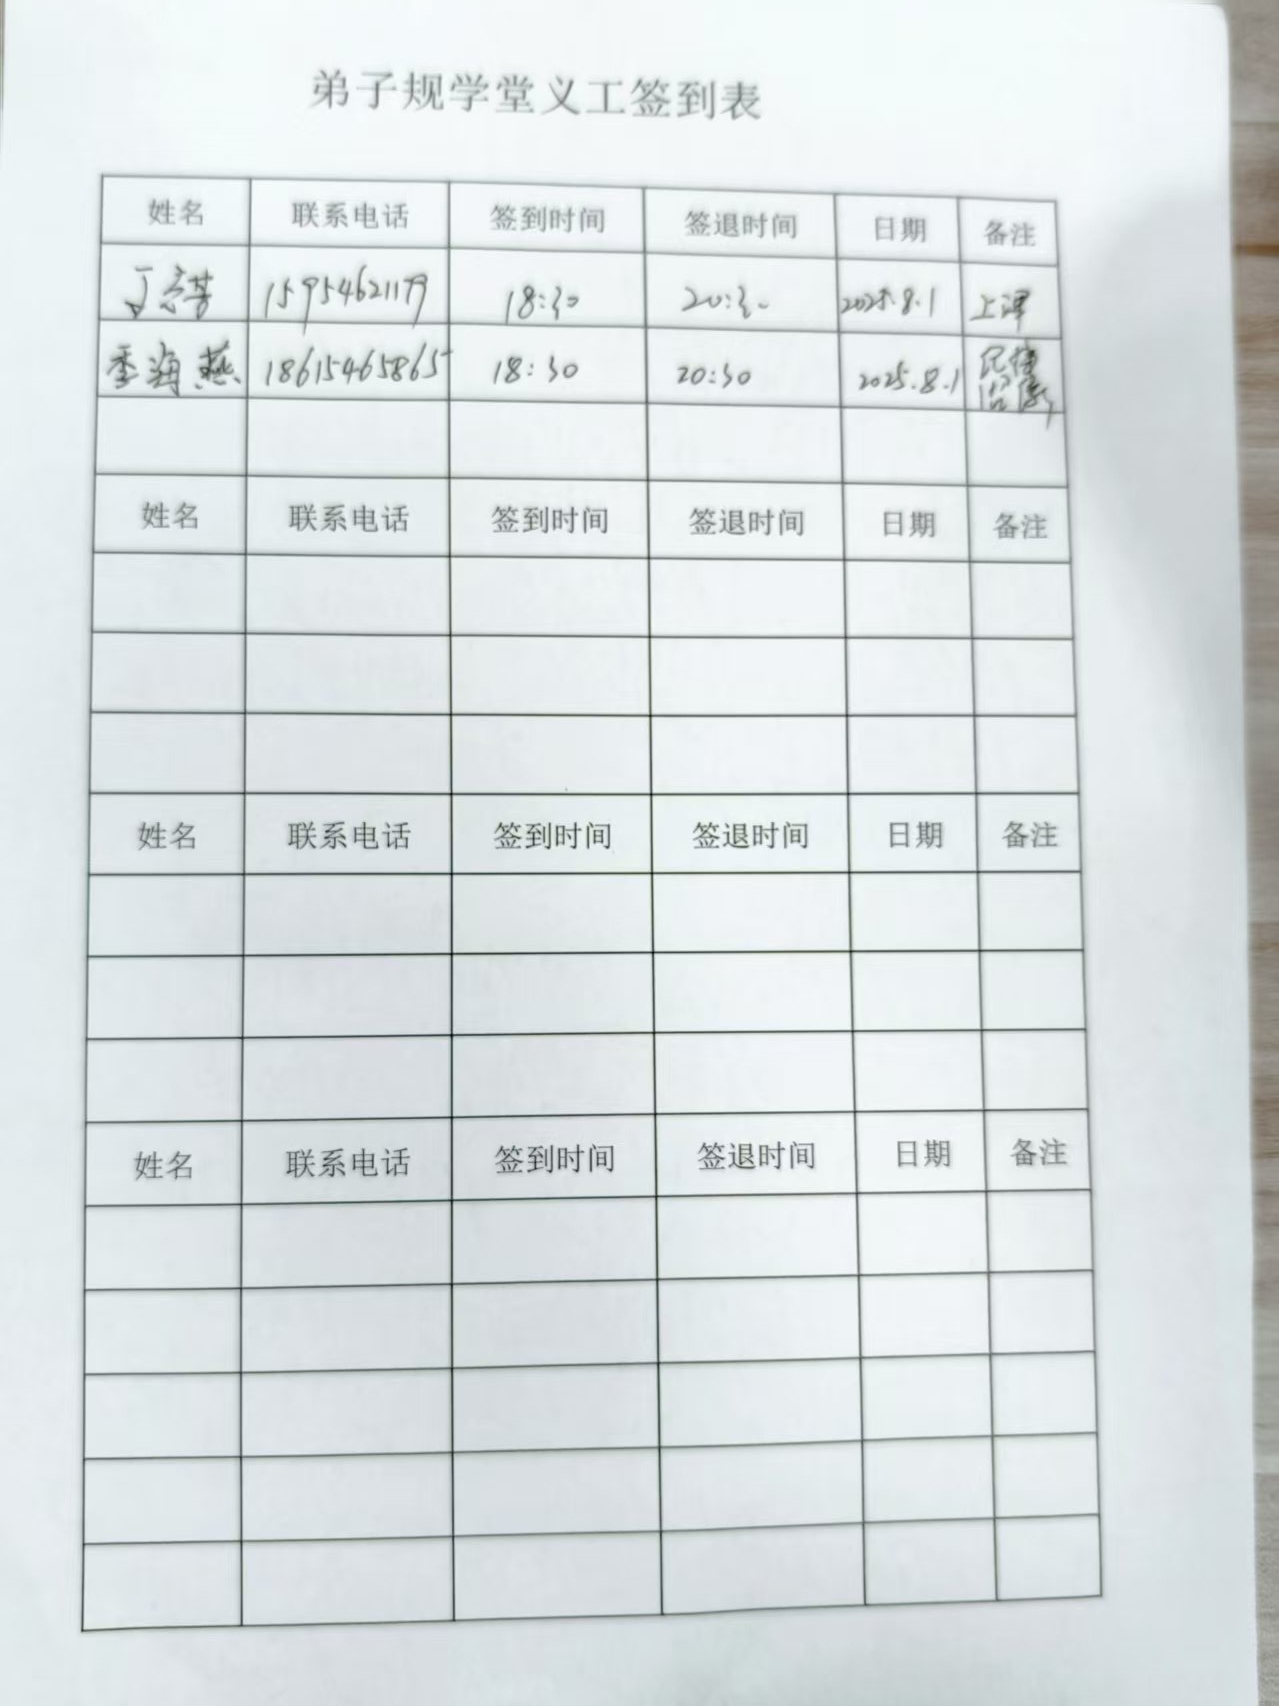 弟子规学堂义工签到表
姓名 联系电话 签到时间 签退时间 日期 备注
丁志芳 15954621179 18:30 20:30 2025.8.1 上课
季海燕 18615465865 18:30 20:30 2025.8.1
姓名 联系电话 签到时间 签退时间 日期 备注
姓名 联系电话 签到时间 签退时间 日期 备注
姓名 联系电话 签到时间 签退时间 日期 备注